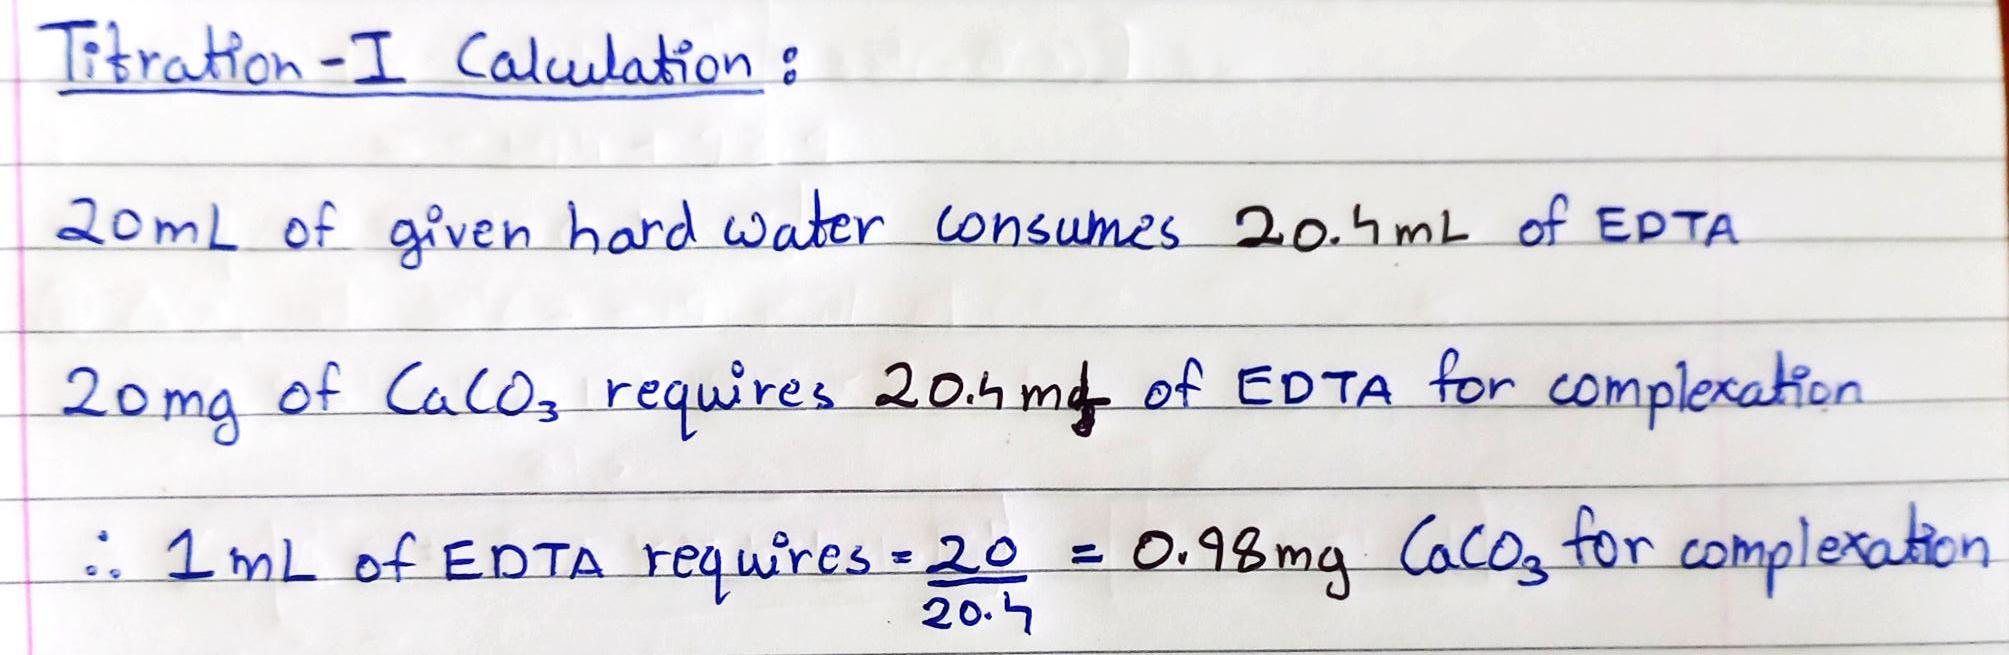 Titration-I Calculation:
20mL of given hard water consumes 20.4mL of EDTA
20mg of CaCO₃ requires 20.4 mg of EDTA for complexation
∴ 1mL of EDTA requires = 20/20.4 = 0.98mg CaCO₃ for complexation